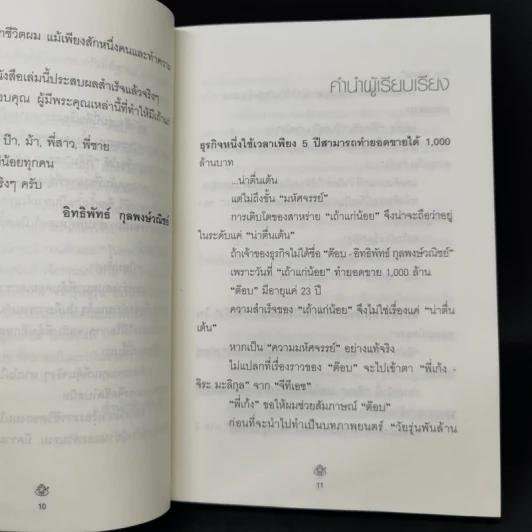 าชีวิตผม แม้เพียงสักหนึ่งคนและทำความ
งสือเล่มนี้ประสบผลสำเร็จแล้วจริงๆ
อบคุณ ผู้มีพระคุณเหล่านี้ที่ทำให้มีเถ้าแก่
ป๊า, ม้า, พี่ลาว, พี่ชาย
น้อยทุกคน
ริงๆ ครับ
อิทธิพัทธ์ กุลพงษ์วณิชย์
10
คำนำผู้เรียบเรียง
ธุรกิจหนึ่งใช้เวลาเพียง 5 ปีสามารถทำยอดขายได้ 1,000
ล้านบาท
...น่าตื่นเต้น
แต่ไม่ถึงขั้น "มหัศจรรย์"
การเติบโตของสาหร่าย "เถ้าแก่น้อย" จึงน่าจะถือว่าอยู่
ในระดับแค่ "น่าตื่นเต้น"
ถ้าเจ้าของธุรกิจไม่ได้ชื่อ "ต๊อบ - อิทธิพัทธ์ กุลพงษ์วณิชย์"
เพราะวันที่ "เถ้าแก่น้อย" ทำยอดขาย 1,000 ล้าน
"ต๊อบ" มีอายุแค่ 23 ปี
ความสำเร็จของ "เถ้าแก่น้อย" จึงไม่ใช่เรื่องแค่ "น่าตื่น
เต้น"
หากเป็น "ความมหัศจรรย์" อย่างแท้จริง
ไม่แปลกที่เรื่องราวของ "ต๊อบ" จะไปเข้าตา "พี่เก้ง -
จิระ มะลิกุล" จาก "จีทีเอช"
"พี่เก้ง" ขอให้ผมช่วยสัมภาษณ์ "ต๊อบ"
ก่อนที่จะนำไปทำเป็นบทภาพยนตร์ "วัยรุ่นพันล้าน
11